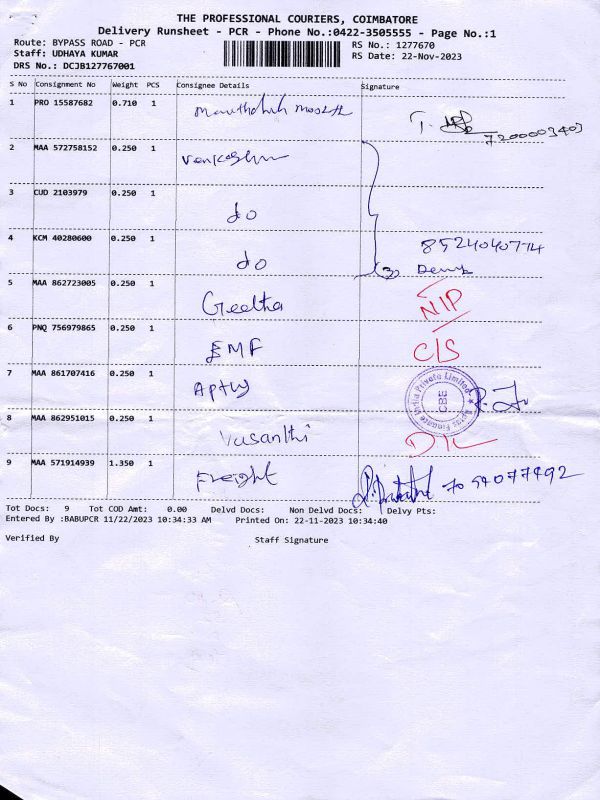 THE PROFESSIONAL COURIERS, COIMBATORE
Delivery Runsheet - PCR - Phone No.:0422-3505555 - Page No.:1
Route: BYPASS ROAD - PCR
RS No.: 1277670
Staff: UDHAYA KUMAR
RS Date: 22-Nov-2023
DRS No.: DCJB127767001
S No Consignment No Weight PCS Consignee Details Signature
1 PRO 15587682 0.710 1
7200003403
2 MAA 572758152 0.250 1
3 CUD 2103979 0.250 1 do
4 KCM 40280600 0.250 1 do (3) 8524040774
5 MAA 862723005 0.250 1 Geetha NIP
6 PNQ 756979865 0.250 1 EMF C/S
7 MAA 861707416 0.250 1
CBE
8 MAA 862951015 0.250 1 Vasanthi D/L
9 MAA 571914939 1.350 1 Freight
Tot Docs: 9 Tot COD Amt: 0.00 Delvd Docs: Non Delvd Docs: Delvy Pts:
Entered By :BABUPCR 11/22/2023 10:34:33 AM Printed On: 22-11-2023 10:34:40
Verified By Staff Signature